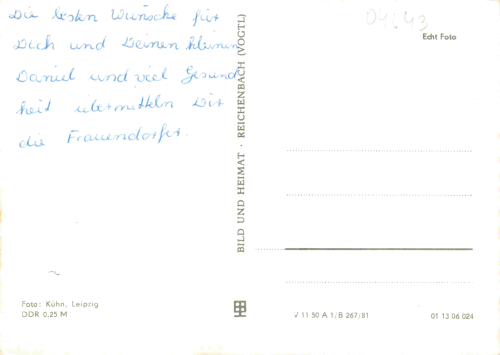 Die besten Wünsche für
Dich und Deinen kleinen
Daniel und viel Gesund
heit übermitteln Dir
die Frauendorfer.
Echt Foto
BILD UND HEIMAT · REICHENBACH (VOGTL)
Foto: Kühn, Leipzig
DDR 0,25 M
V 11 50 A 1/B 267/81
01 13 06 024